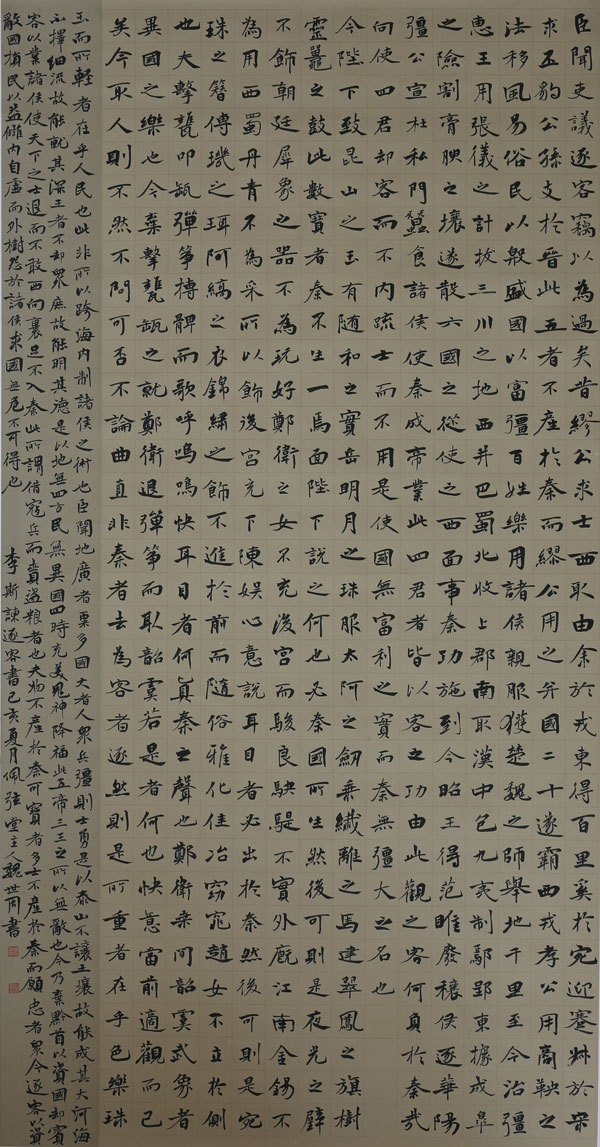 臣聞吏議逐客竊以為過矣昔繆公求士西取由余於戎東得百里奚於宛迎蹇叔於宋
求丕豹公孫支於晉此五者不產於秦而繆公用之并國二十遂霸西戎孝公用商鞅之
法移風易俗民以殷盛國以富彊百姓樂用諸侯親服獲楚魏之師舉地千里至今治彊
惠王用張儀之計拔三川之地西并巴蜀北收上郡南取漢中包九夷制鄢郢東據成皋
之險割膏腴之壤遂散六國之從使之西面事秦功施到今昭王得范雎廢穰侯逐華陽
彊公室杜私門蠶食諸侯使秦成帝業此四君者皆以客之功由此觀之客何負於秦哉
向使四君却客而不內疏士而不用是使國無富利之實而秦無彊大之名也
今陛下致昆山之玉有隨和之寶垂明月之珠服太阿之劍乘纖離之馬建翠鳳之旗樹
靈鼉之鼓此數寶者秦不生一焉而陛下說之何也必秦國所生然後可則是夜光之璧
不飾朝廷犀象之器不為玩好鄭衛之女不充後宮而駿良駃騠不實外廄江南金錫不
為用西蜀丹青不為采所以飾後宮充下陳娛心意說耳目者必出於秦然後可則是宛
珠之簪傅璣之珥阿縞之衣錦繡之飾不進於前而隨俗雅化佳冶窈窕趙女不立於側
也夫擊甕叩缻彈箏搏髀而歌呼嗚嗚快耳目者何真秦之聲也鄭衛桑間韶虞武象者
異國之樂也今棄擊甕缻之就鄭衛退彈箏而取韶虞若是者何也快意當前適觀而已
矣今取人則不然不問可否不論曲直非秦者去為客者逐然則是所重者在乎色樂珠
玉而所輕者在乎人民也此非所以跨海內制諸侯之術也臣聞地廣者粟多國大者人眾兵彊則士勇是以泰山不讓土壤故能成其大河海
不擇細流故能就其深王者不却眾庶故能明其德是以地無四方民無異國四時充美鬼神降福此五帝三王之所以無敵也今乃棄黔首以資國却賓
客以業諸侯使天下之士退而不敢西向裹足不入秦此所謂借寇兵而齎盜糧者也夫物不產於秦可寶者多士不產於秦而願忠者眾今逐客以資
敵國損民以益讎內自虛而外樹怨於諸侯求國無危不可得也 李斯諫逐客書己亥夏月佩弦堂主人魏世周書